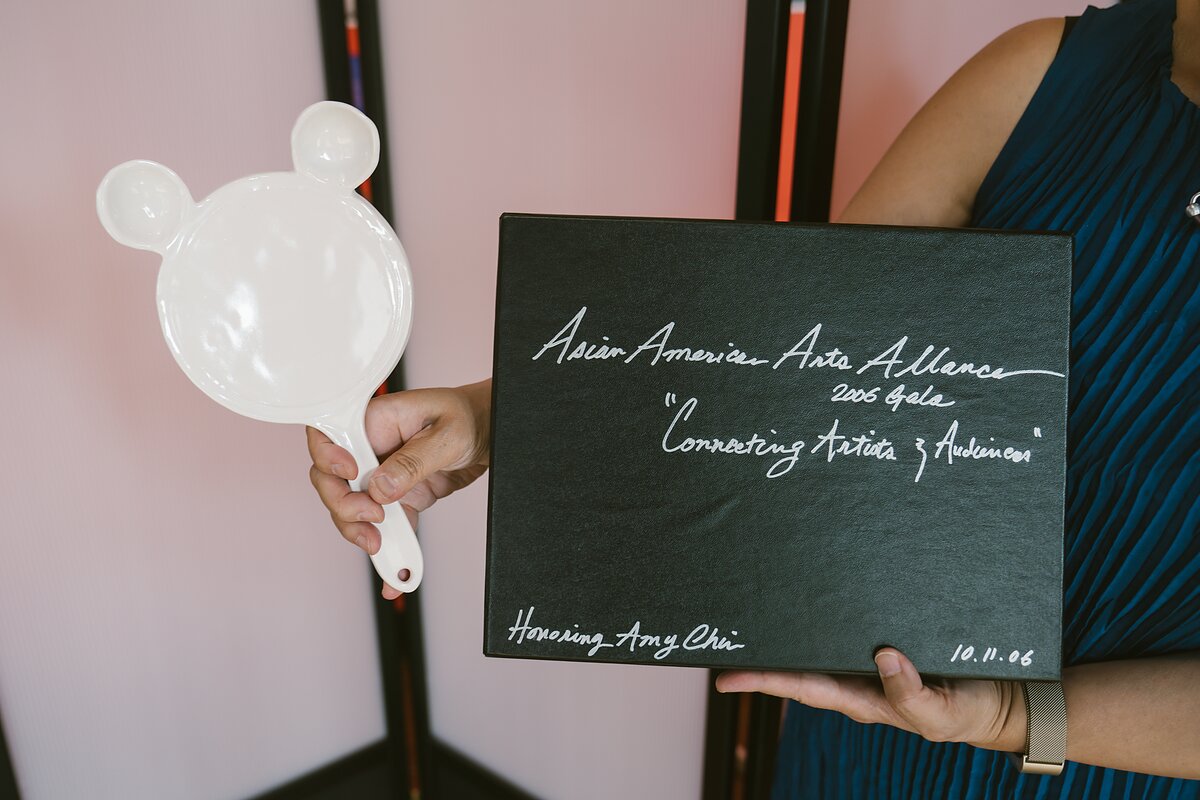 Asian American Arts Alliance
2006 Gala
"Connecting Artists & Audiences"
Honoring Amy Chin
10.11.06